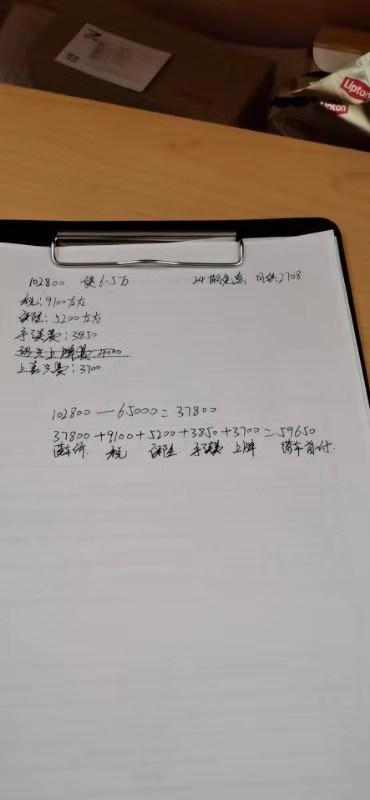 Lipton
Lipton
102800 贷6.5万 24期免息 月供2708
税:9100左右
保险:5200左右
手续费:3850
上牌费:3700
102800—65000=37800
37800+9100+5200+3850+3700=59650
税 保险 手续费 上牌 首付